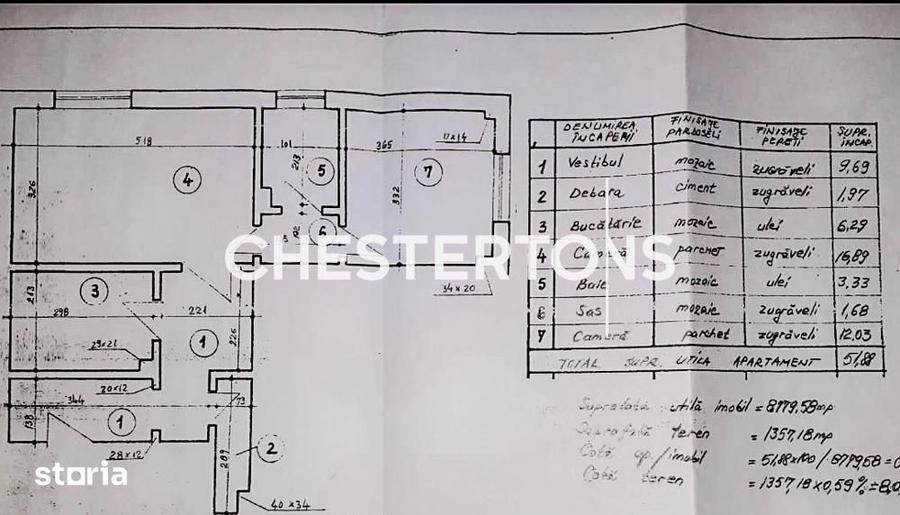 518
101
365
17x14
213
5
4
7
326
332
102
6
CHESTERTONS
34x20
3
213
298
221
1
226
29x21
20x12
344
73
138
1
28x12
2
289
40x34
DENUMIREA ÎNCĂPERII FINISAJE PARDOSELI FINISAJE PEREȚI SUPR. ÎNCĂP.
1 Vestibul mozaic zugrăveli 9,69
2 Debara ciment zugrăveli 1,97
3 Bucătărie mozaic ulei 6,29
4 Cameră parchet zugrăveli 16,89
5 Baie mozaic ulei 3,33
6 Sas mozaic zugrăveli 1,68
7 Cameră parchet zugrăveli 12,03
TOTAL SUPR. UTILA APARTAMENT 51,88
Suprafață utilă imobil = 8779,58mp
Suprafață teren = 1357,18mp
Cotă ap./imobil = 51,88x100/8779,58=0
Cotă teren = 1357,18x0,59%=8,0
storia